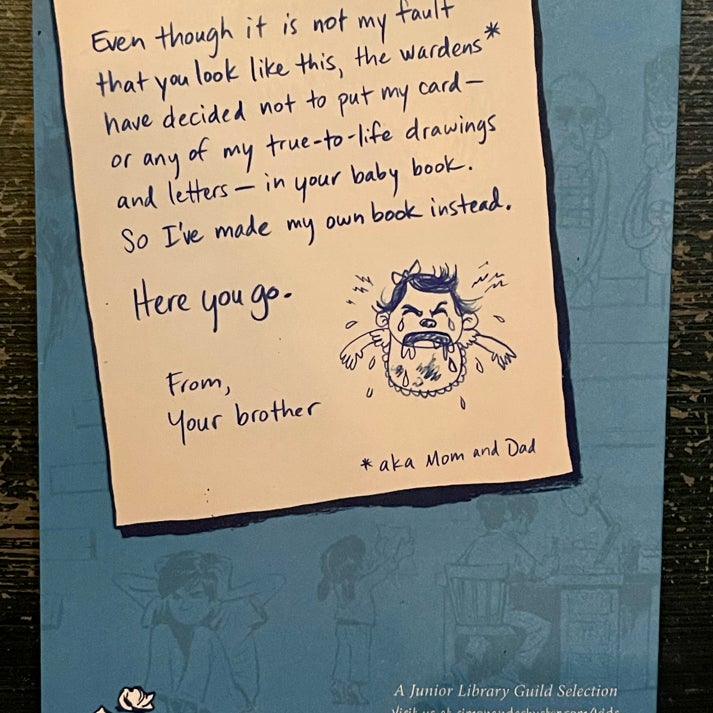 Even though it is not my fault
that you look like this, the wardens*
have decided not to put my card—
or any of my true-to-life drawings
and letters— in your baby book.
So I've made my own book instead.
Here you go.
From,
Your brother
*aka Mom and Dad
A Junior Library Guild Selection
Visit us at simonandschuster.com/kids